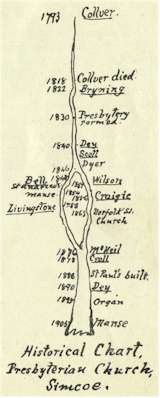 1793 Collver.
1818 Collver died.
1822 Bryning
1830 Presbytery
formed.
1840 Dey
Scott
Dyer
Bell
St Andrew's
manse.
Livingstone
Wilson
Craigie
Norfolk St.
Church
McNeil
Croll
St Paul's built.
1890 Dey
Organ
Manse
Historical Chart,
Presbyterian Church,
Simcoe.